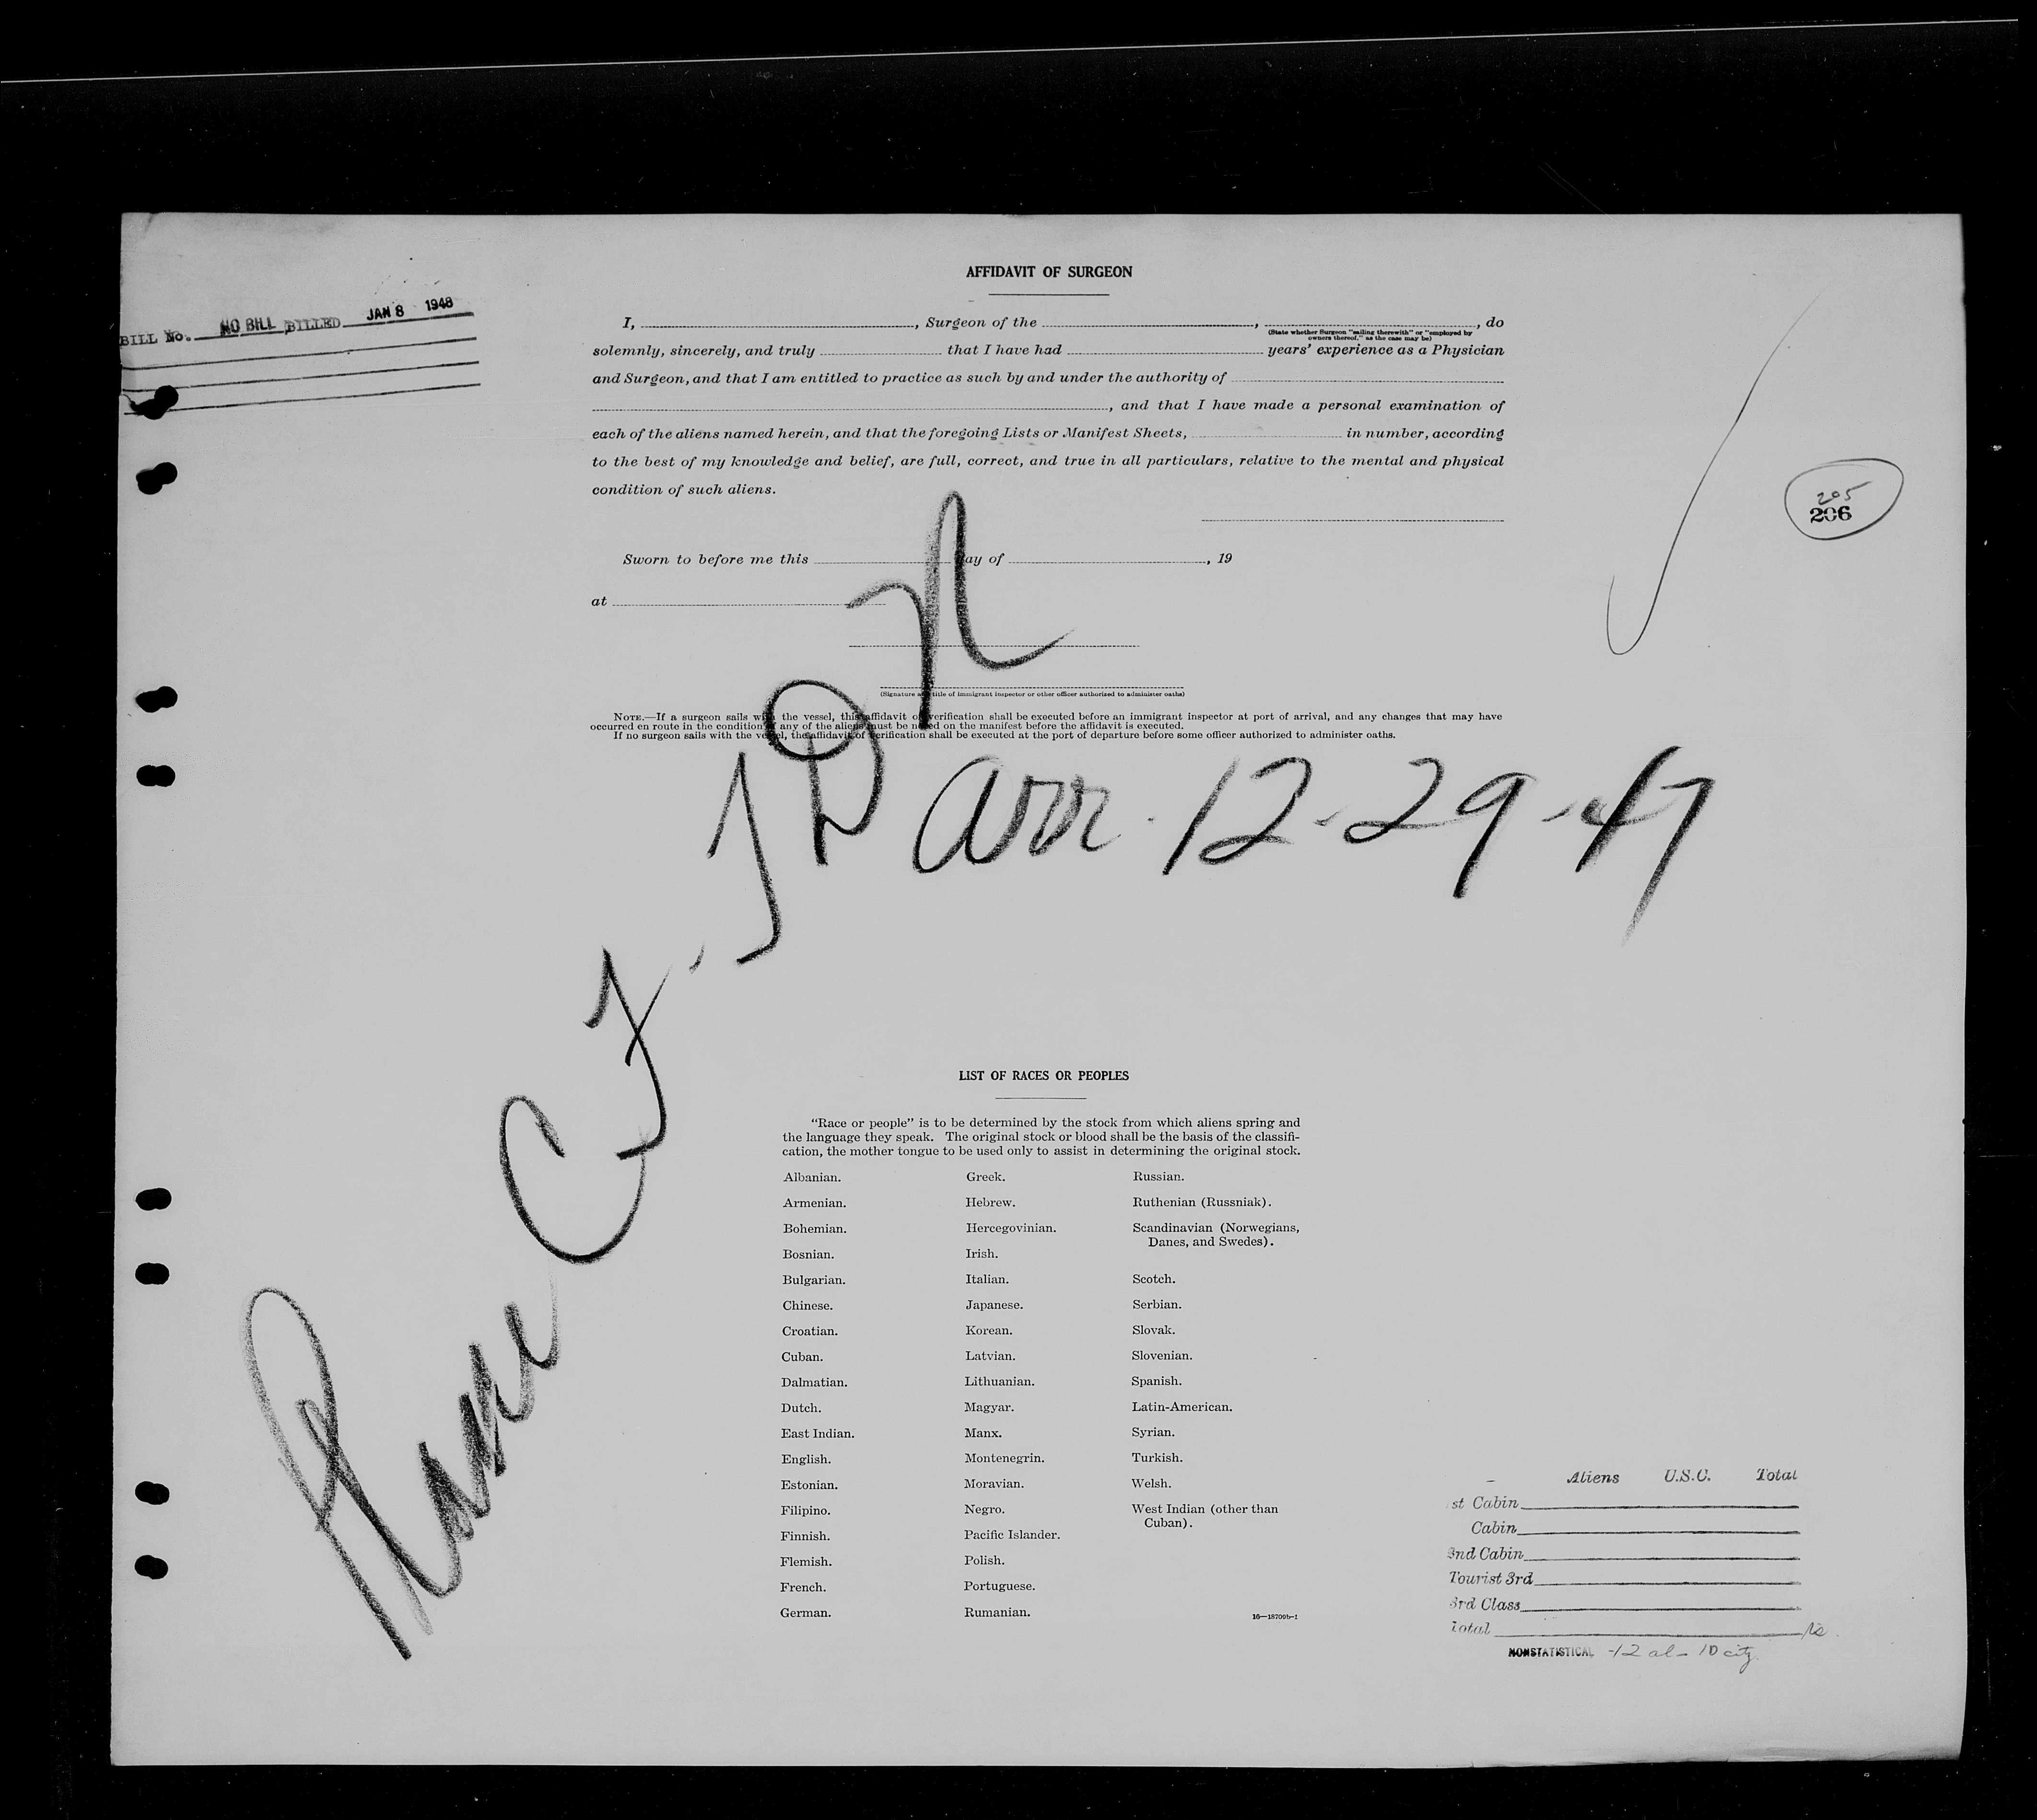 AFFIDAVIT OF SURGEON
BILL No. NO BILL BILLED JAN 8 1948
I, , Surgeon of the , , do
(State whether Surgeon "sailing therewith" or "employed by
owners thereof," as the case may be)
solemnly, sincerely, and truly that I have had years' experience as a Physician
and Surgeon, and that I am entitled to practice as such by and under the authority of
, and that I have made a personal examination of
each of the aliens named herein, and that the foregoing Lists or Manifest Sheets, in number, according
to the best of my knowledge and belief, are full, correct, and true in all particulars, relative to the mental and physical
condition of such aliens.
205
206
Sworn to before me this day of , 19
at
(Signature and title of immigrant inspector or other officer authorized to administer oaths)
NOTE.—If a surgeon sails with the vessel, this affidavit or verification shall be executed before an immigrant inspector at port of arrival, and any changes that may have
occurred en route in the condition of any of the aliens must be noted on the manifest before the affidavit is executed.
If no surgeon sails with the vessel, the affidavit of verification shall be executed at the port of departure before some officer authorized to administer oaths.
Plane
arr. 12-29-47
LIST OF RACES OR PEOPLES
"Race or people" is to be determined by the stock from which aliens spring and
the language they speak. The original stock or blood shall be the basis of the classifi-
cation, the mother tongue to be used only to assist in determining the original stock.
Albanian.
Armenian.
Bohemian.
Bosnian.
Bulgarian.
Chinese.
Croatian.
Cuban.
Dalmatian.
Dutch.
East Indian.
English.
Estonian.
Filipino.
Finnish.
Flemish.
French.
German.
Greek.
Hebrew.
Hercegovinian.
Irish.
Italian.
Japanese.
Korean.
Latvian.
Lithuanian.
Magyar.
Manx.
Montenegrin.
Moravian.
Negro.
Pacific Islander.
Polish.
Portuguese.
Rumanian.
Russian.
Ruthenian (Russniak).
Scandinavian (Norwegians,
Danes, and Swedes).
Scotch.
Serbian.
Slovak.
Slovenian.
Spanish.
Latin-American.
Syrian.
Turkish.
Welsh.
West Indian (other than
Cuban).
16—18709b-1
Aliens U.S.C. Total
st Cabin
Cabin
2nd Cabin
Tourist 3rd
3rd Class
Total
NONSTATISTICAL -12 al - 10 city